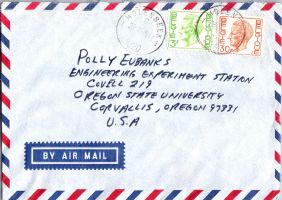 POLLY EUBANKS
ENGINEERING EXPERIMENT STATION
COVELL 219
OREGON STATE UNIVERSITY
CORVALLIS, OREGON 97331
U.S.A
BY AIR MAIL